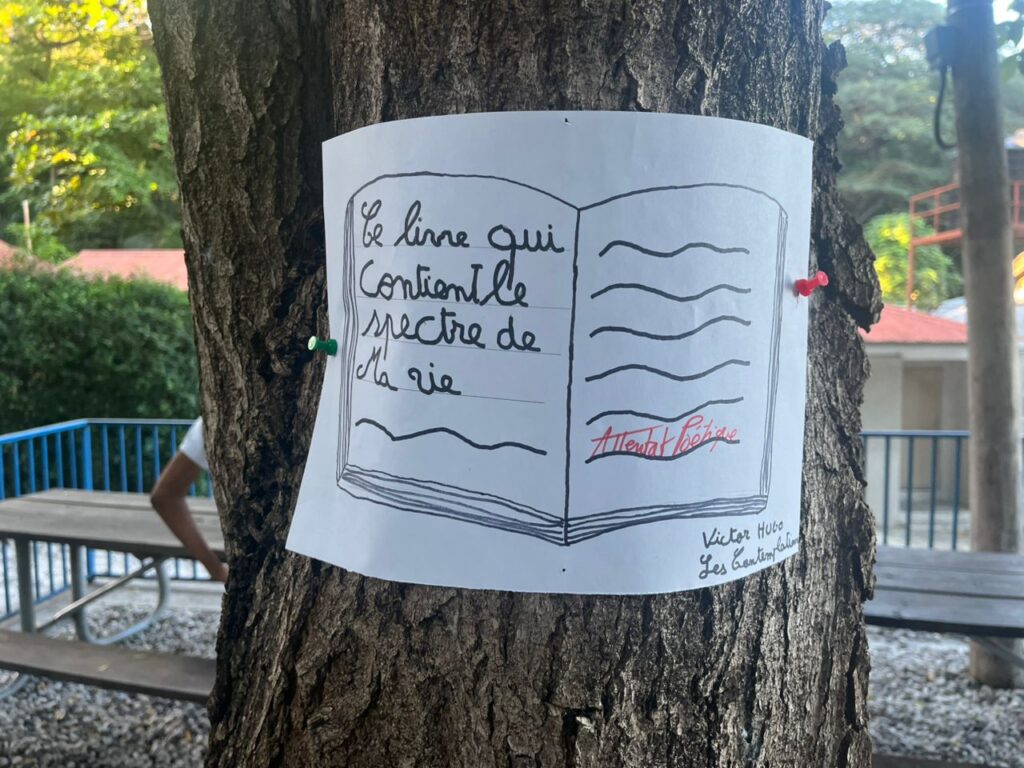 Ce livre qui
Contient le
spectre de
Ma vie
Attentat Poétique
Victor HUGO
Les Contemplations